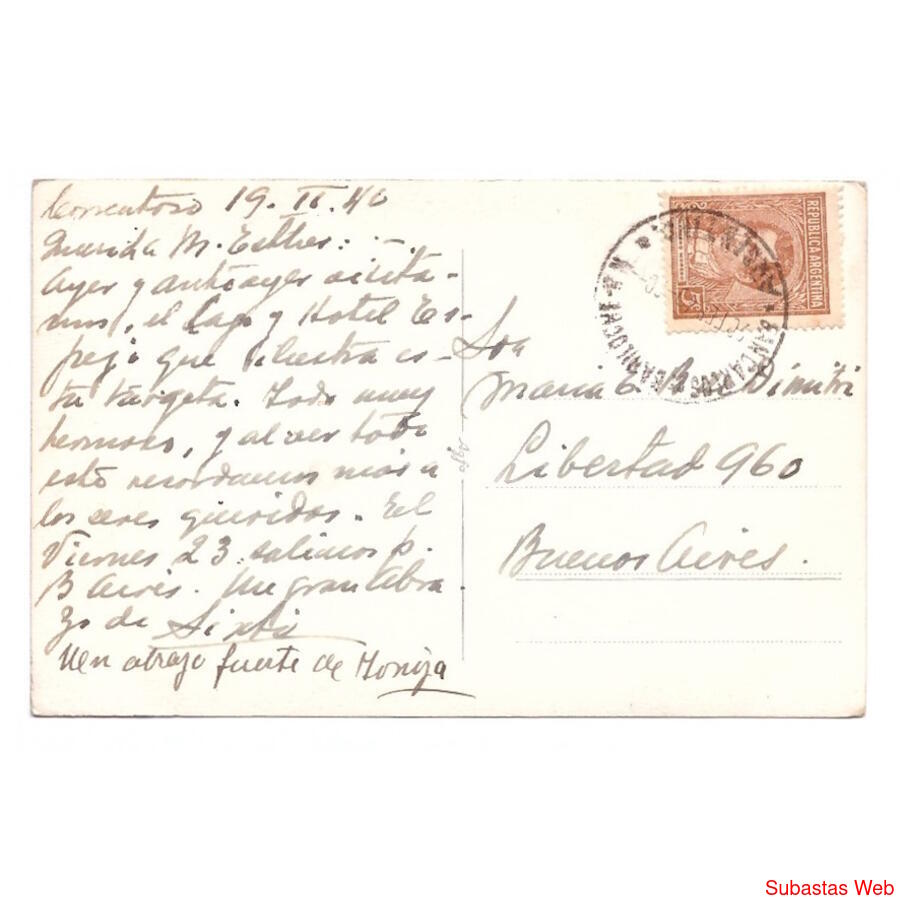 Correntoso 19. II. 40
Querida M. Esther:
Ayer y anteayer visita-
mos, el Lago y Hotel Es-
pejo que ilustra es-
ta targeta. Todo muy
hermoso, y al ver todo
esto recordamos más a
los seres queridos. El
Viernes 23 salimos p.
B Aires. Un gran abra
zo de Sixto
Un abrazo fuerte de
Agfa
REPUBLICA ARGENTINA
5c
SAN CARLOS BARILOCHE
Sra
Maria E. Dimitri
Libertad 960
Buenos Aires.
Subastas Web